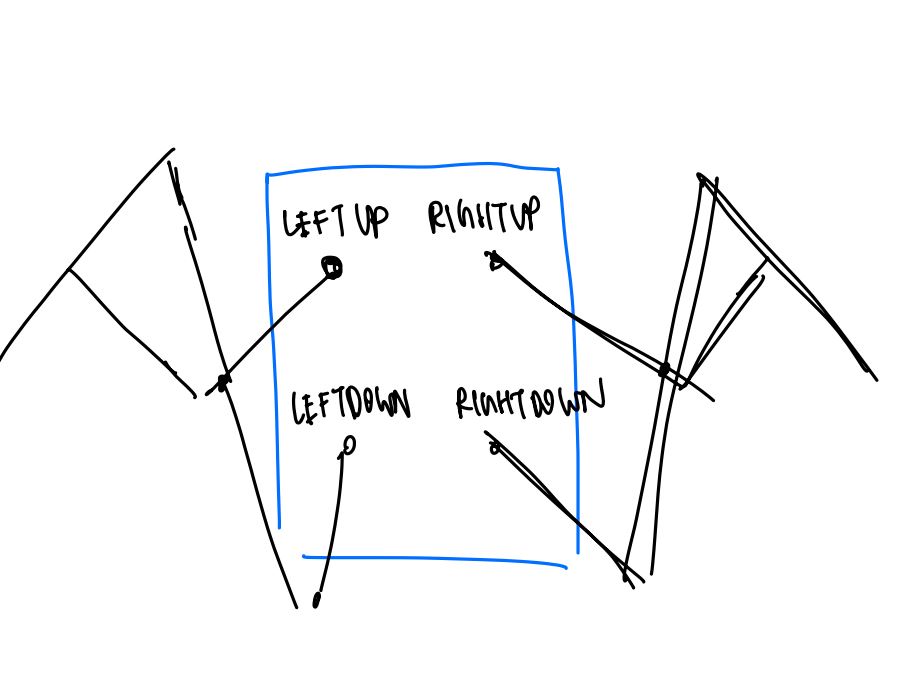 LEFT UP RIGHT UP
LEFTDOWN RIGHTDOWN